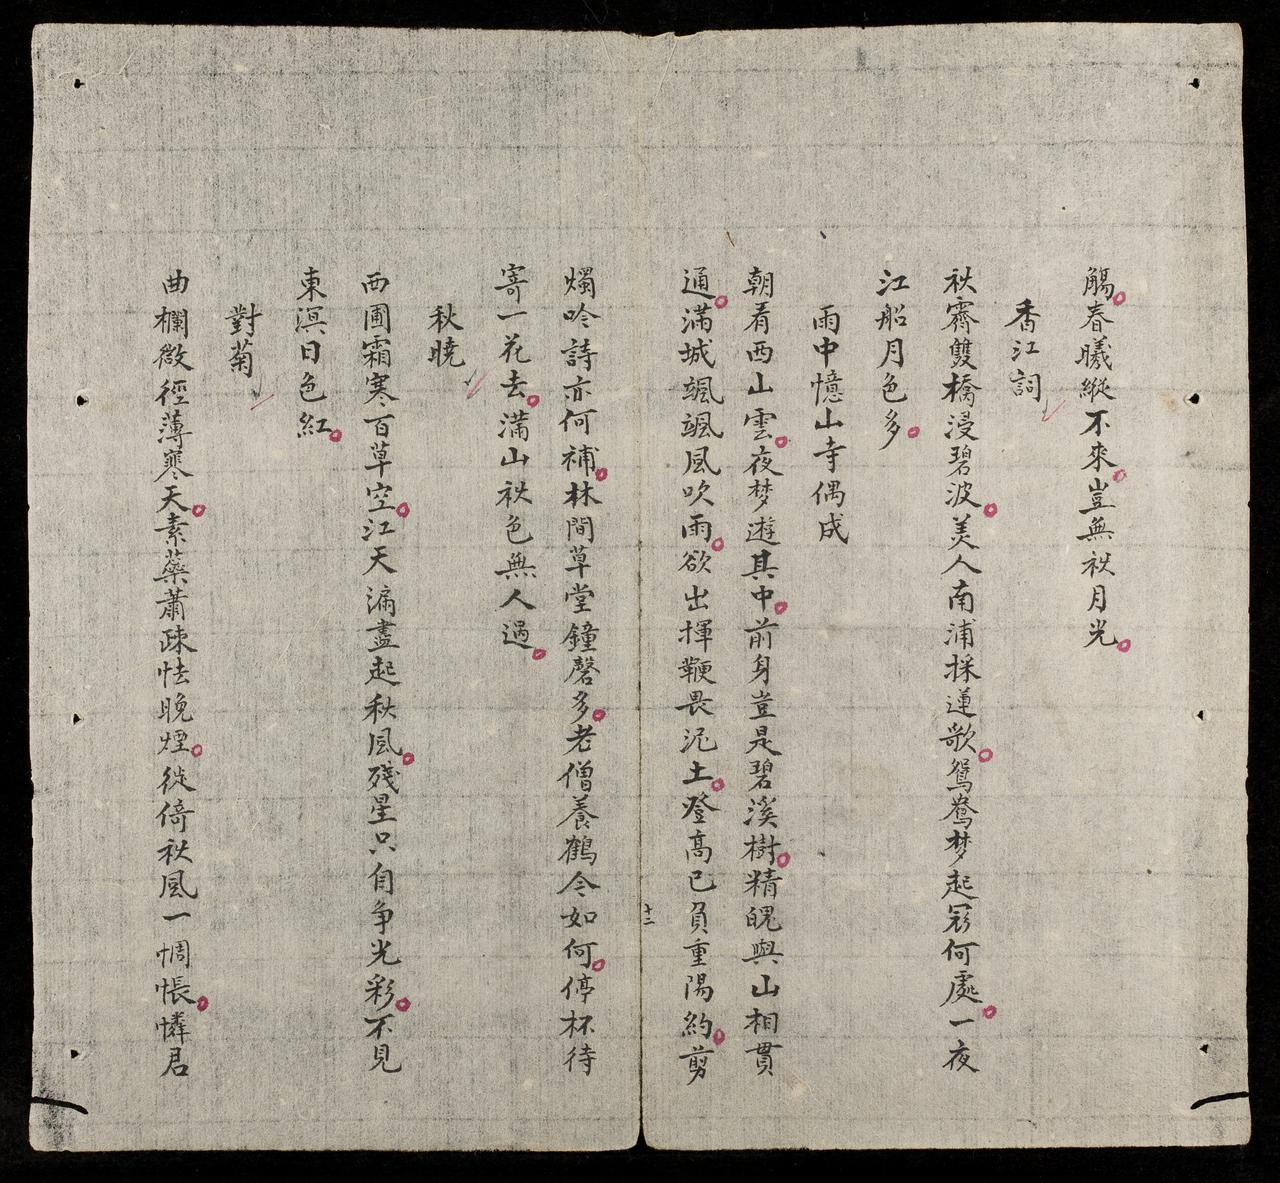 觴春曦縱不來豈無秋月光
香江詞
秋霽雙橋浸碧波美人南浦採蓮歌鴛鴦梦起冢何處一夜
江船月色多
雨中憶山寺偶成
朝看西山雲夜梦遊其中前身豈是碧溪樹精魄與山相貫
通滿城颯颯風吹雨欲出揮鞭畏泥土登高已負重陽約剪
十二
燭吟詩亦何補林間草堂鐘磬多老僧養鶴今如何停杯待
寄一花去滿山秋色無人過
秋曉
西圃霜寒百草空江天漏盡起秋風殘星只自争光彩不見
東溟日色紅
對菊
曲欄微徑薄寒天素蘂蕭疎怯晚煙徙倚秋風一惆悵憐君